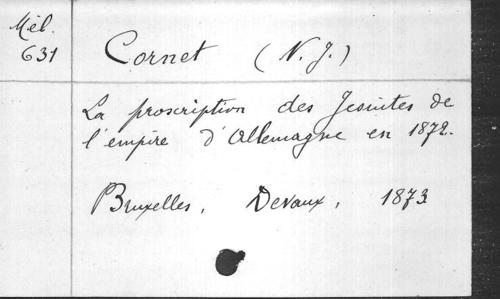 Mél.
631
Cornet (N. J.)
La proscription des Jesuites de
l'empire d'Allemagne en 1872.
Bruxelles, Devaux, 1873